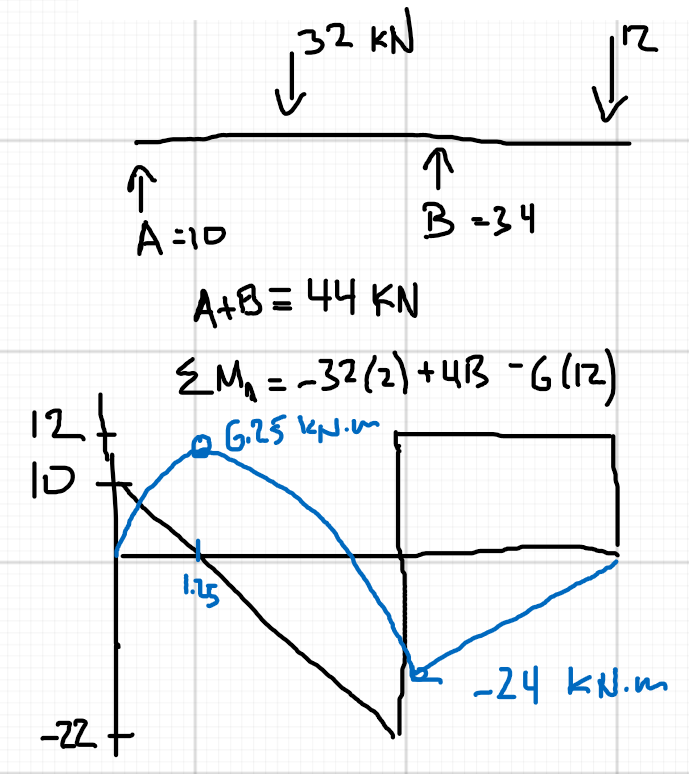 32 KN
12
A=10
B=34
A+B = 44 KN
ΣM_A = -32(2)+4B -6(12)
12
6.25 kN.m
10
1.25
-24 kN.m
-22